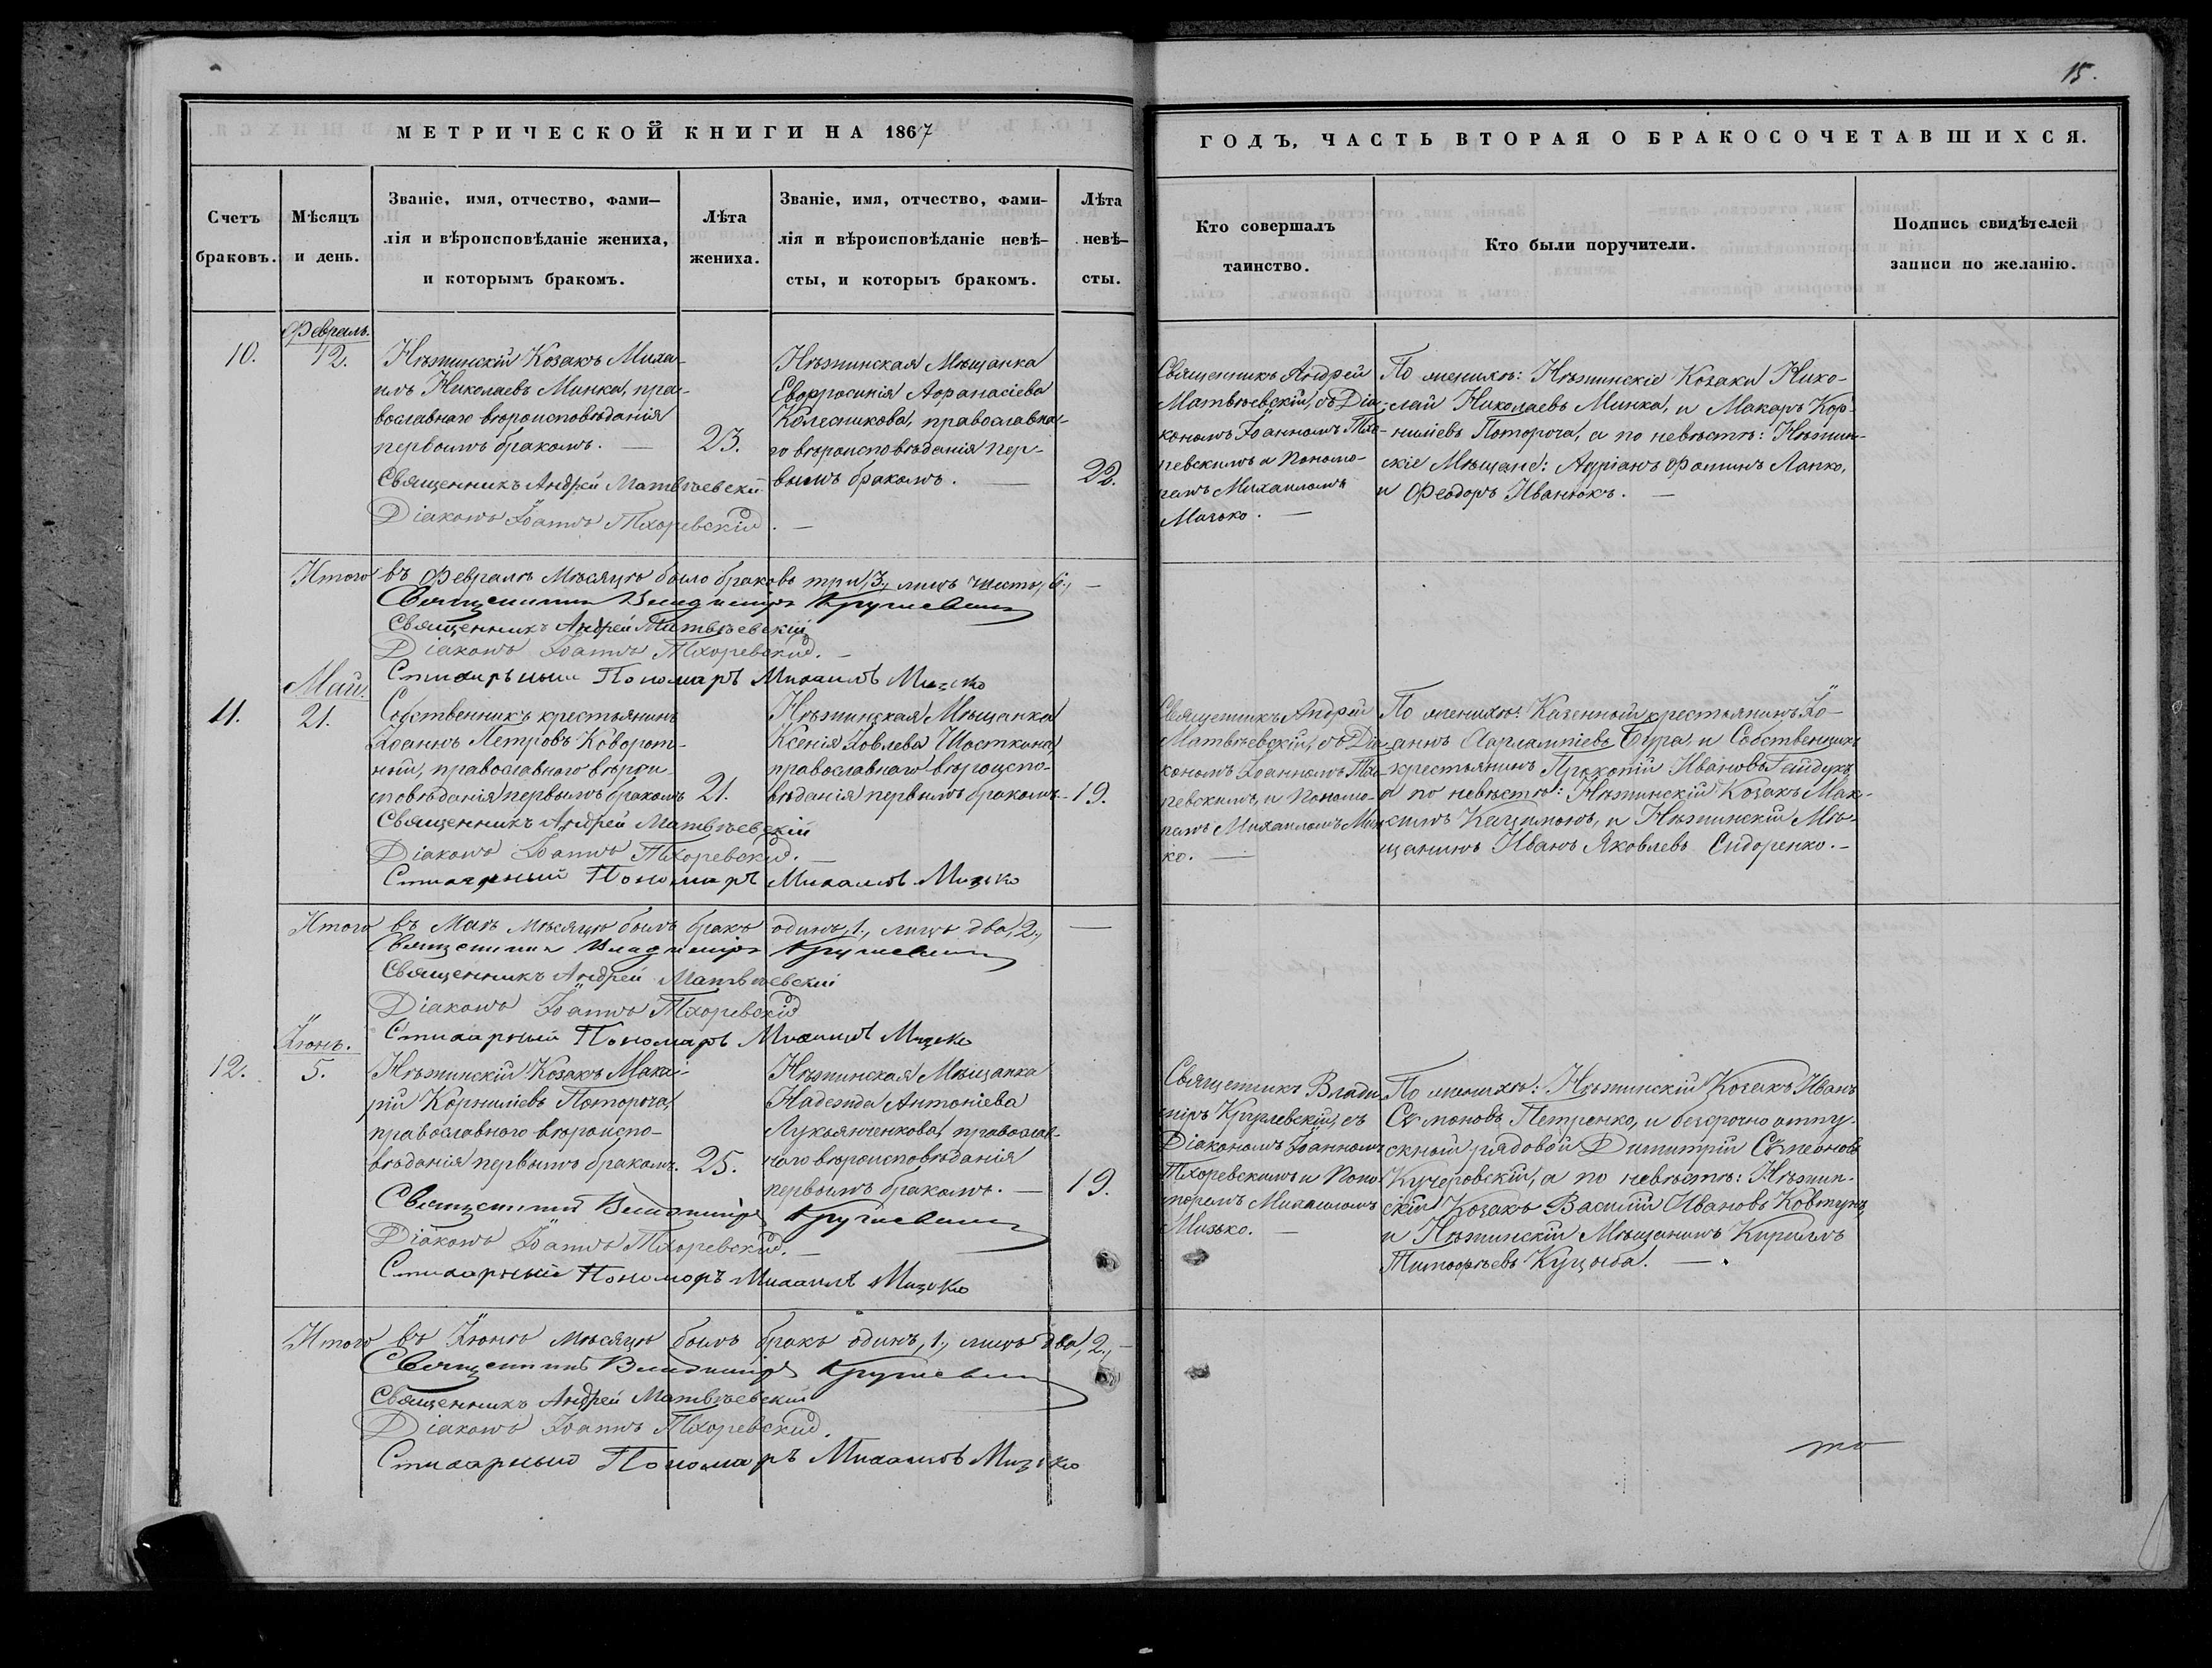 15.
МЕТРИЧЕСКОЙ КНИГИ НА 1867
ГОДЪ, ЧАСТЬ ВТОРАЯ О БРАКОСОЧЕТАВШИХСЯ.
Счетъ
браковъ.
Мѣсяцъ
и день.
Званіе, имя, отчество, фами-
лія и вѣроисповѣданіе жениха,
и которымъ бракомъ.
Лѣта
жениха.
Званіе, имя, отчество, фами-
лія и вѣроисповѣданіе невѣ-
сты, и которыъ бракомъ.
Лѣта
невѣ-
сты.
Кто совершалъ
таинство.
Кто были поручители.
Подпись свидѣтелей
записи по желанію.
10.
Февраль.
12.
Нѣжинскій Козакъ Миха-
илъ Николаевъ Минка, пра-
вославнаго вѣроисповѣданія
первымъ бракомъ. —
23.
Священникъ Андрей Матвѣевскій
Діаконъ Іоаннъ Тхоревскій. —
Нѣжинская Мѣщанка
Евфросинія Афанасіева
Колесникова, православна-
го вѣроисповѣданія пер-
вымъ бракомъ. —
22.
Священникъ Андрей
Матвѣевскій, съ Діа-
кономъ Іоанномъ Тхо-
ревскимъ и Понома-
ремъ Михаиломъ
Мизько. —
По женихѣ: Нѣжинскіе Козаки Нико-
лай Николаевъ Минка, и Макаръ Кор-
ниліевъ Потороча, а по невѣстѣ: Нѣжин-
скіе Мѣщане: Адріанъ Фоминъ Лапко,
и Феодоръ Иванюкъ. —
Итого въ Февралѣ Мѣсяцѣ было браковъ три, 3., лицъ шесть, 6., —
Священникъ Владиміръ
Священникъ Андрей Матвѣевскій
Діаконъ Іоаннъ Тхоревскій. —
Стихарный Пономаръ Михаилъ Мизько
11.
Май.
21.
Собственникъ крестьянинъ
Іоаннъ Петровъ Коворот-
ный, православнаго вѣрои-
сповѣданія первымъ бракомъ
21.
Священникъ Андрей Матвѣевскій
Діаконъ Іоаннъ Тхоревскій. —
Стихарный Пономаръ Михаилъ Мизько
Нѣжинская Мѣщанка
Ксенія Іовлева Шосткина
православнаго вѣроиспо-
вѣданія первымъ бракомъ.
19.
Священникъ Андрей
Матвѣевскій, съ Діа-
кономъ Іоанномъ Тхо-
ревскимъ, и Понома-
ремъ Михаиломъ Мизь-
ко. —
По женихѣ: Казенный крестьянинъ Іо-
аннъ Харлампіевъ Бура, и Собственникъ
крестьянинъ Прокопій Ивановъ Гайдукъ
а по невѣстѣ: Нѣжинскій Козакъ Мак-
симъ Кацимонъ, и Нѣжинскій Мѣ-
щанинъ Иванъ Яковлевъ Сидоренко. —
Итого въ Маѣ мѣсяцѣ былъ бракъ одинъ, 1., лицъ два, 2., —
Священникъ Владиміръ
Священникъ Андрей Матвѣевскій
Діаконъ Іоаннъ Тхоревскій
Стихарный Пономаръ Михаилъ Мизько
12.
Іюнь.
5.
Нѣжинскій Козакъ Мака-
рій Корниліевъ Потороча,
православнаго вѣроиспо-
вѣданія первымъ бракомъ.
25.
Священникъ Владиміръ
Діаконъ Іоаннъ Тхоревскій. —
Стихарный Пономаръ Михаилъ Мизько
Нѣжинская Мѣщанка
Надежда Антоніева
Лукьянченкова, православ-
наго вѣроисповѣданія
первымъ бракомъ. —
19.
Священникъ Влади-
міръ съ
Діакономъ Іоанномъ
Тхоревскимъ и Поно-
маремъ Михаиломъ
Мизько. —
По женихѣ: Нѣжинскій Козакъ Иванъ
Петренко, и безсрочно отпу-
скный рядовой Димитрій Стефановъ
Кучеровскій, а по невѣстѣ: Нѣжин-
скій Козакъ Василій Ивановъ Ковтунъ
и Нѣжинскій Мѣщанинъ Кириллъ
Тимофѣевъ Куцыба. —
Итого въ Іюнѣ мѣсяцѣ былъ бракъ одинъ, 1., лицъ два, 2., —
Священникъ Владиміръ
Священникъ Андрей Матвѣевскій
Діаконъ Іоаннъ Тхоревскій.
Стихарный Пономаръ Михаилъ Мизько